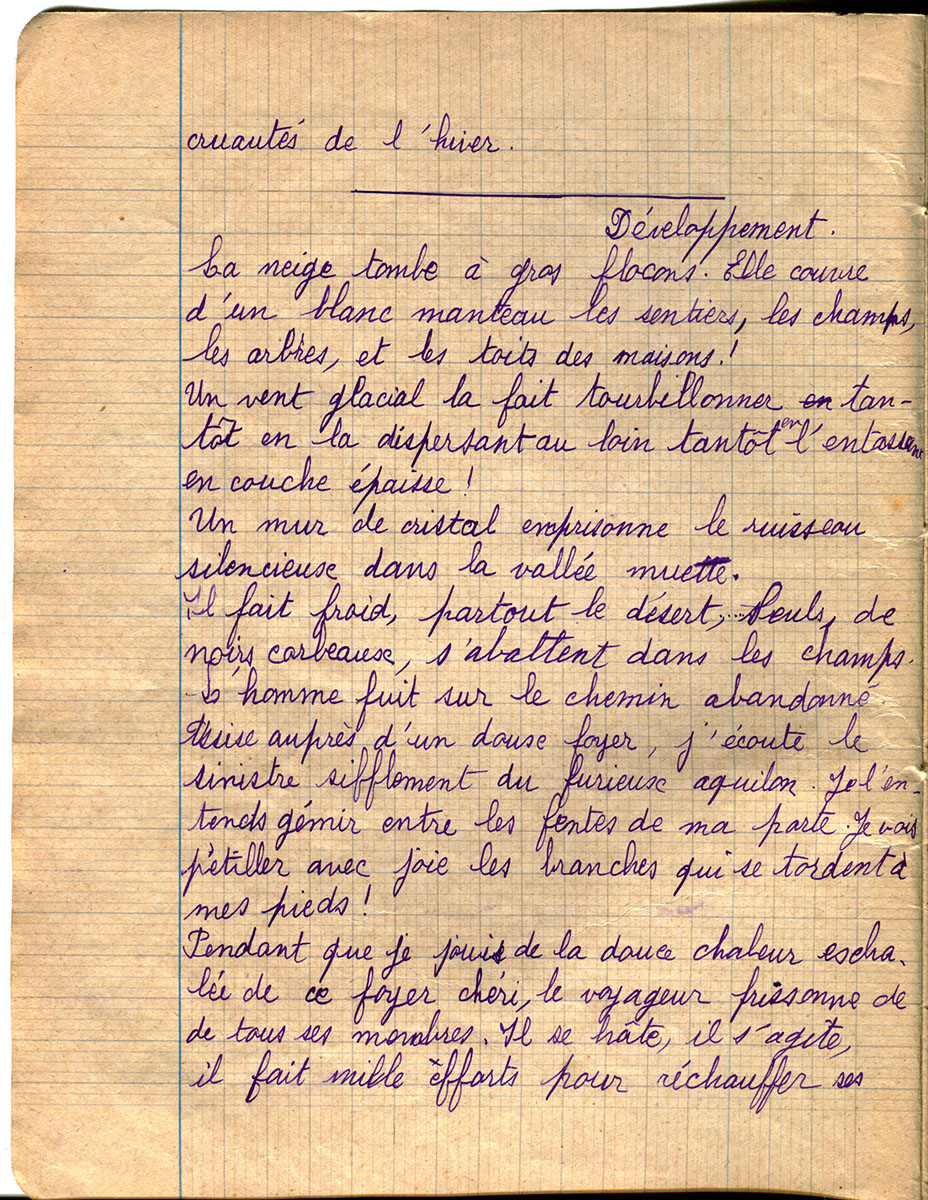 cruautés de l'hiver.
Développement.
La neige tombe à gros flocons. Elle couvre
d'un blanc manteau les sentiers, les champs,
les arbres, et les toits des maisons!
Un vent glacial la fait tourbillonner en tan-
tôt en la dispersant au loin tantôt en l'entassant
en couche épaisse!
Un mur de cristal emprisonne le ruisseau
silencieux dans la vallée muette.
Il fait froid, partout le désert,... Seuls, de
noirs corbeaux, s'abattent dans les champs.
L'homme fuit sur le chemin abandonné.
Assise auprès d'un doux foyer, j'écoute le
sinistre sifflement du furieux aquilon. Je l'en-
tends gémir entre les fentes de ma porte. Je vois
pétiller avec joie les branches qui se tordent à
mes pieds!
Pendant que je jouis de la douce chaleur escha-
lée de ce foyer chéri, le voyageur frissonne de
de tous ses membres. Il se hâte, il s'agite,
il fait mille efforts pour réchauffer ses